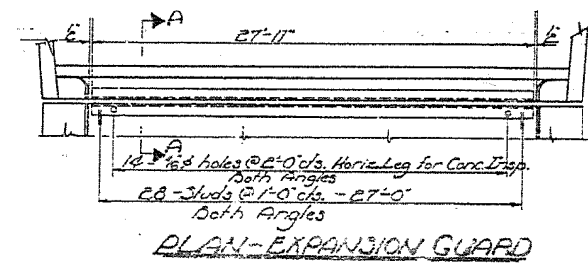 A
27'-11"
½"
½"
A
14 - ⁹⁄₁₆"ϕ holes @ 2'-0" cts. Horiz. Leg for Conc. Insp.
Both Angles
28 - Studs @ 1'-0" cts. - 27'-0"
Both Angles
PLAN - EXPANSION GUARD